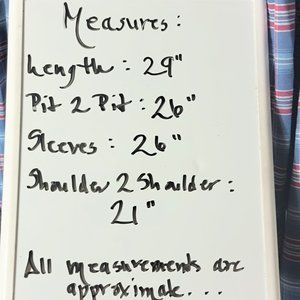 Measures:
Length: 29"
Pit 2 Pit: 26"
Sleeves: 26"
Shoulder 2 Shoulder:
21"
All measurements are
approximate...